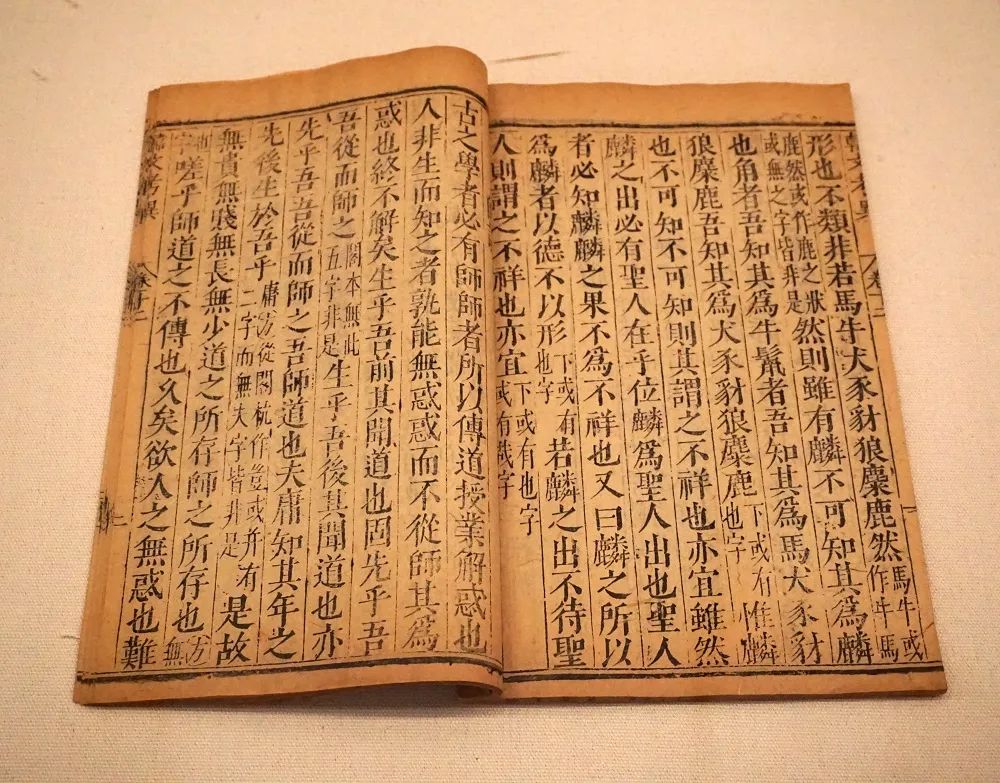 韓文考異 卷十二
形也不類非若馬牛犬豕豺狼麋鹿然馬牛或作牛馬
鹿然或作鹿之狀或無之字皆非是然則雖有麟不可知其爲麟
也角者吾知其爲牛鬣者吾知其爲馬犬豕豺
狼麋鹿吾知其爲犬豕豺狼麋鹿下或有也字惟麟
也不可知不可知則其謂之不祥也亦宜雖然
麟之出必有聖人在乎位麟爲聖人出也聖人
者必知麟麟之果不爲不祥也又曰麟之所以
爲麟者以德不以形下或有也字若麟之出不待聖
人則謂之不祥也亦宜下或有也字或有哉字
古之學者必有師師者所以傳道授業解惑也
人非生而知之者孰能無惑惑而不從師其爲
惑也終不解矣生乎吾前其聞道也固先乎吾
吾從而師之閣本無此五字非是生乎吾後其聞道也亦
先乎吾吾從而師之吾師道也夫庸知其年之
先後生於吾乎庸方從閣杭作豈或并有二字而無夫字皆非是是故
無貴無賤無長無少道之所存師之所存也方無
字嗟乎師道之不傳也久矣欲人之無惑也難
韓文考異 卷十二